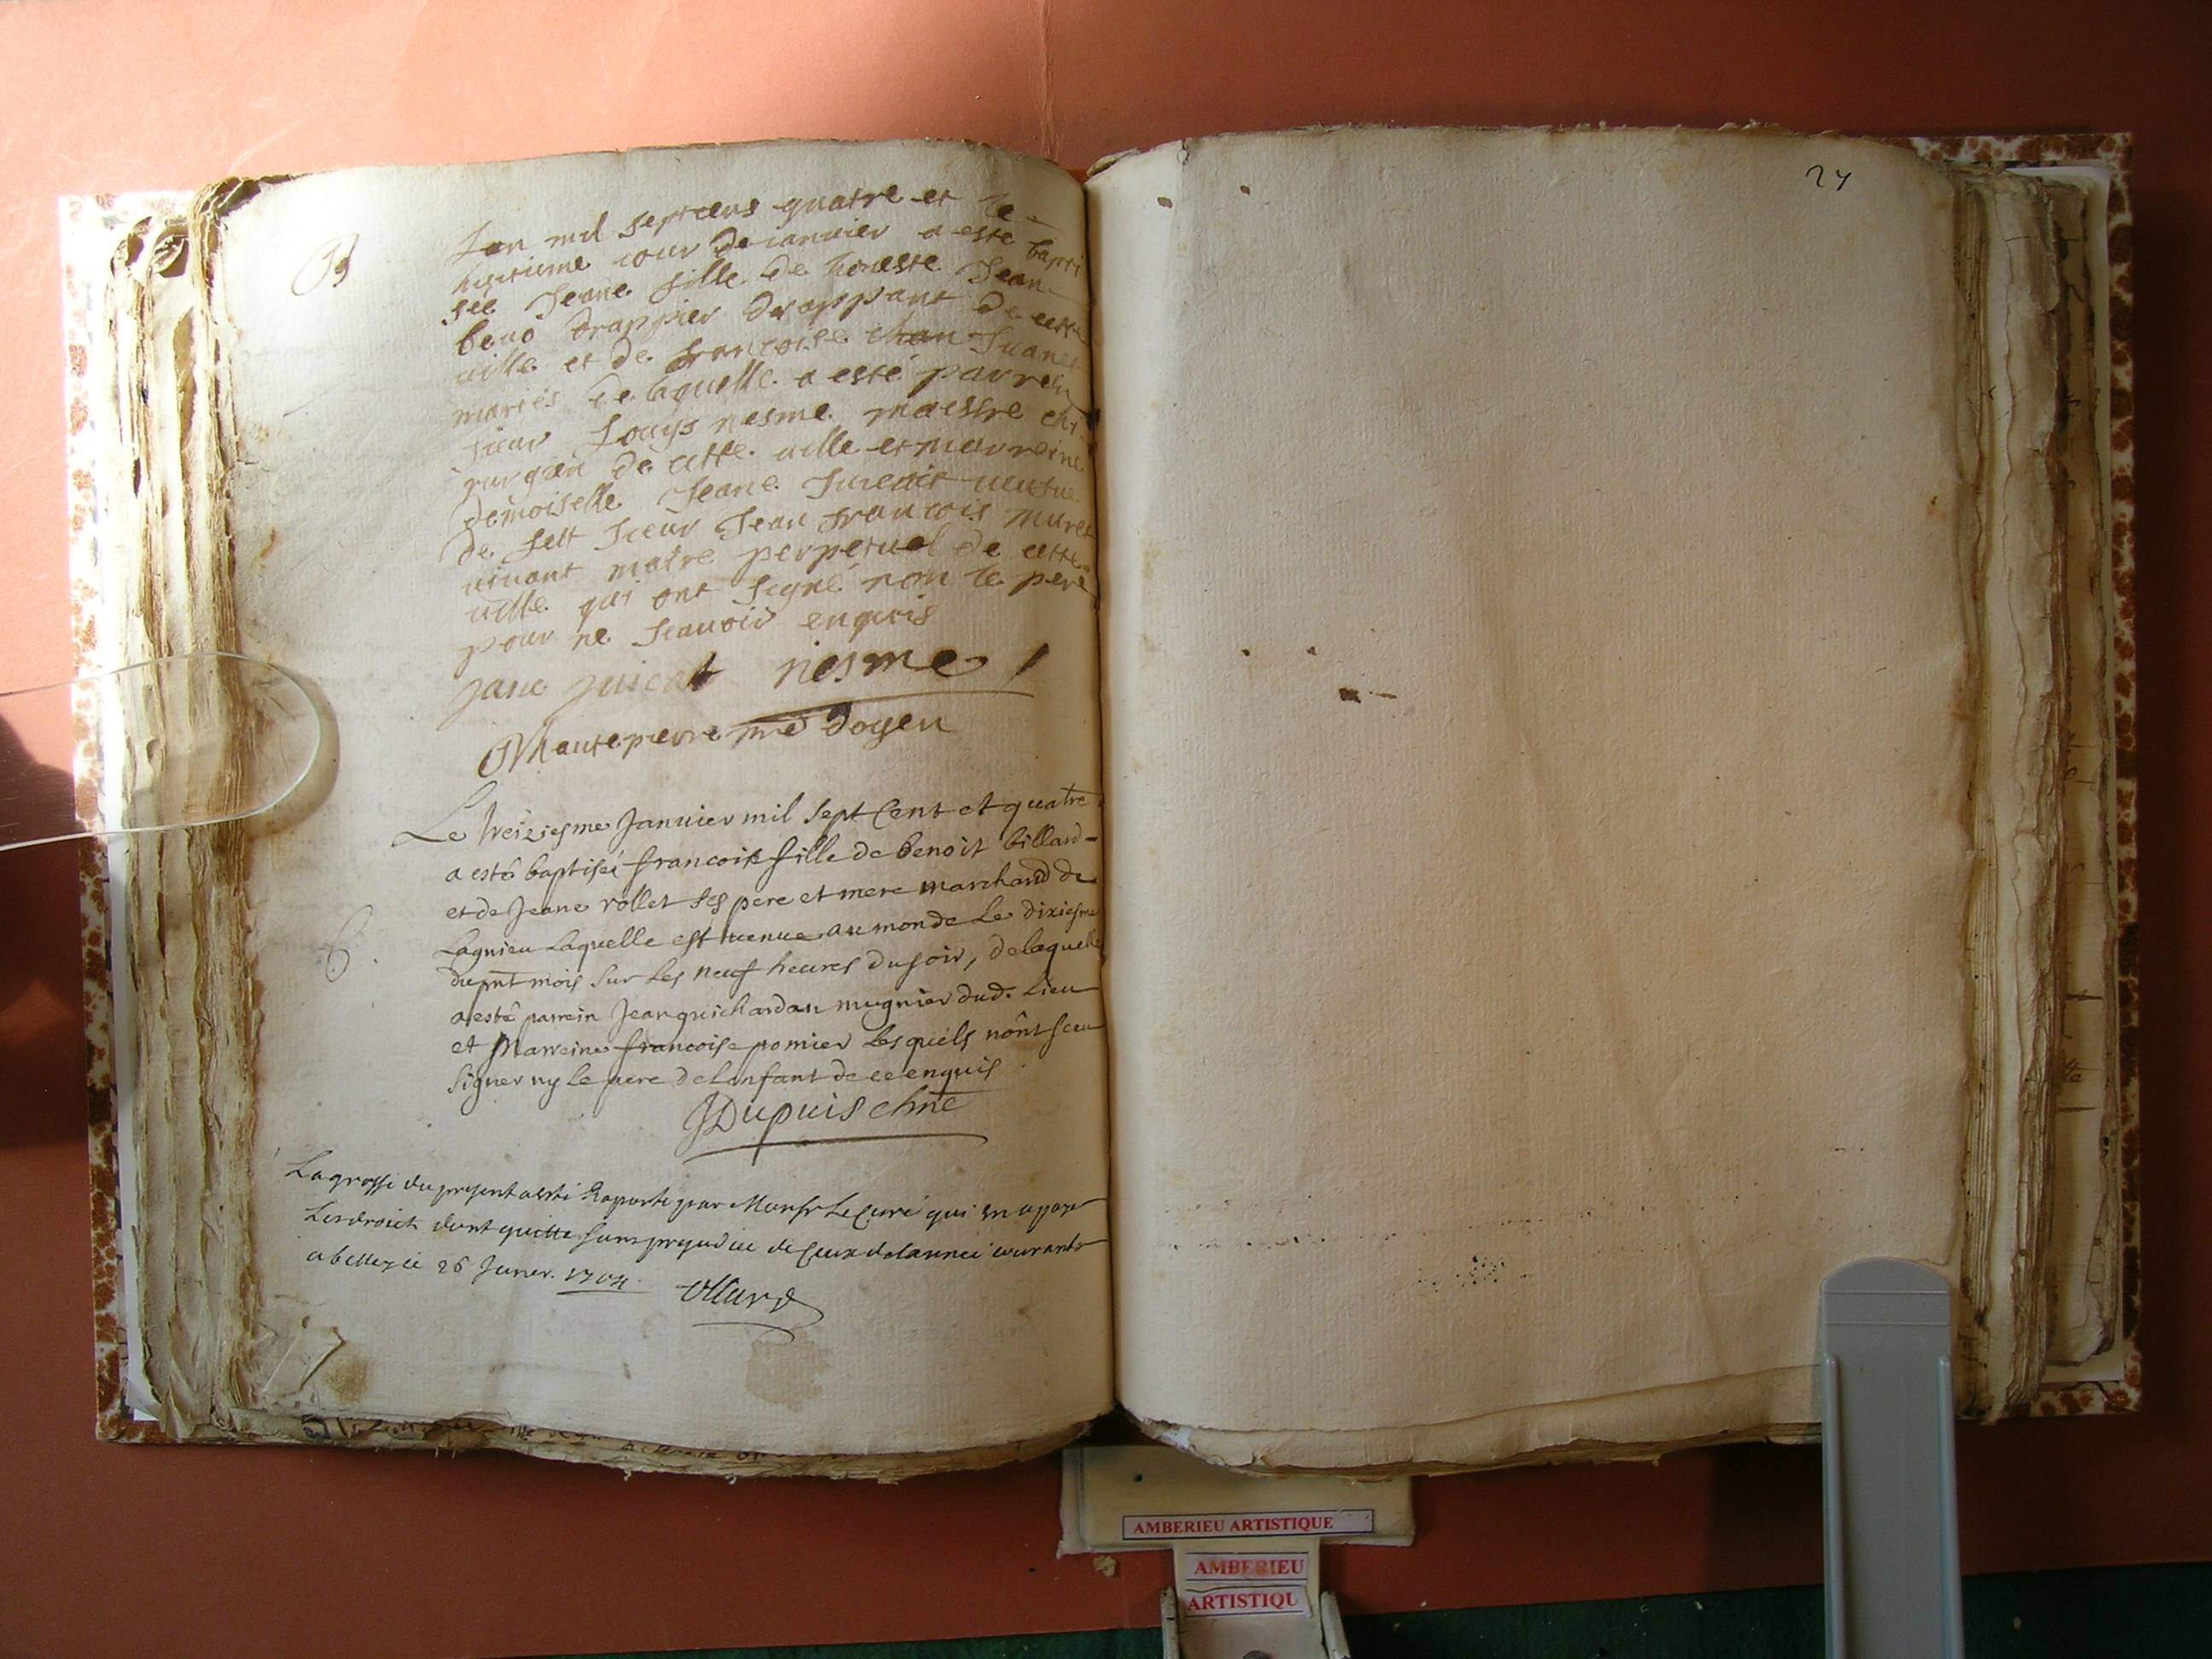 B
Lan mil septcens quatre et le
huictieme iour de ianvier a este bapti
sée Jeane fille de honeste Jean
drappier drappant de cette
ville et de francoise chan Juanet
mariés de laquelle a esté parrein
sieur Louys nesme maistre chi
rurgien de cette ville et marreine
demoiselle Jeane Juenet veufve
de feu sieur Jean francois muret
vivant maire perpetuel de cette
ville qui ont signé non le pere
pour ne scauoir enquis
jane juicat nesme
hautepierre doyen
Le treiziesme Januier mil sept Cent et quatre
a esté baptisée francoise fille de benoit billard
et de Jeane rollet ses pere et mere marchand de
Lagnieu Laquelle est venue au monde Le dixiesme
dupnt mois sur Les neuf heures du soir, delaquelle
a esté parrein Jean guichardan mugnier dud. Lieu
B.
et Marreine francoise pomier Lesquels nont sceu
signer ny Le pere de Lenfant de ce enquis
JDupuis chne
La grosse du present a esté Raporté par Monsr Le Curé qui en a payé
Les droicts dont quitte sans prejudice de Ceux de lannée courante
a belley ce 26 Janer. 1704
24
AMBERIEU ARTISTIQUE
AMBERIEU
ARTISTIQU